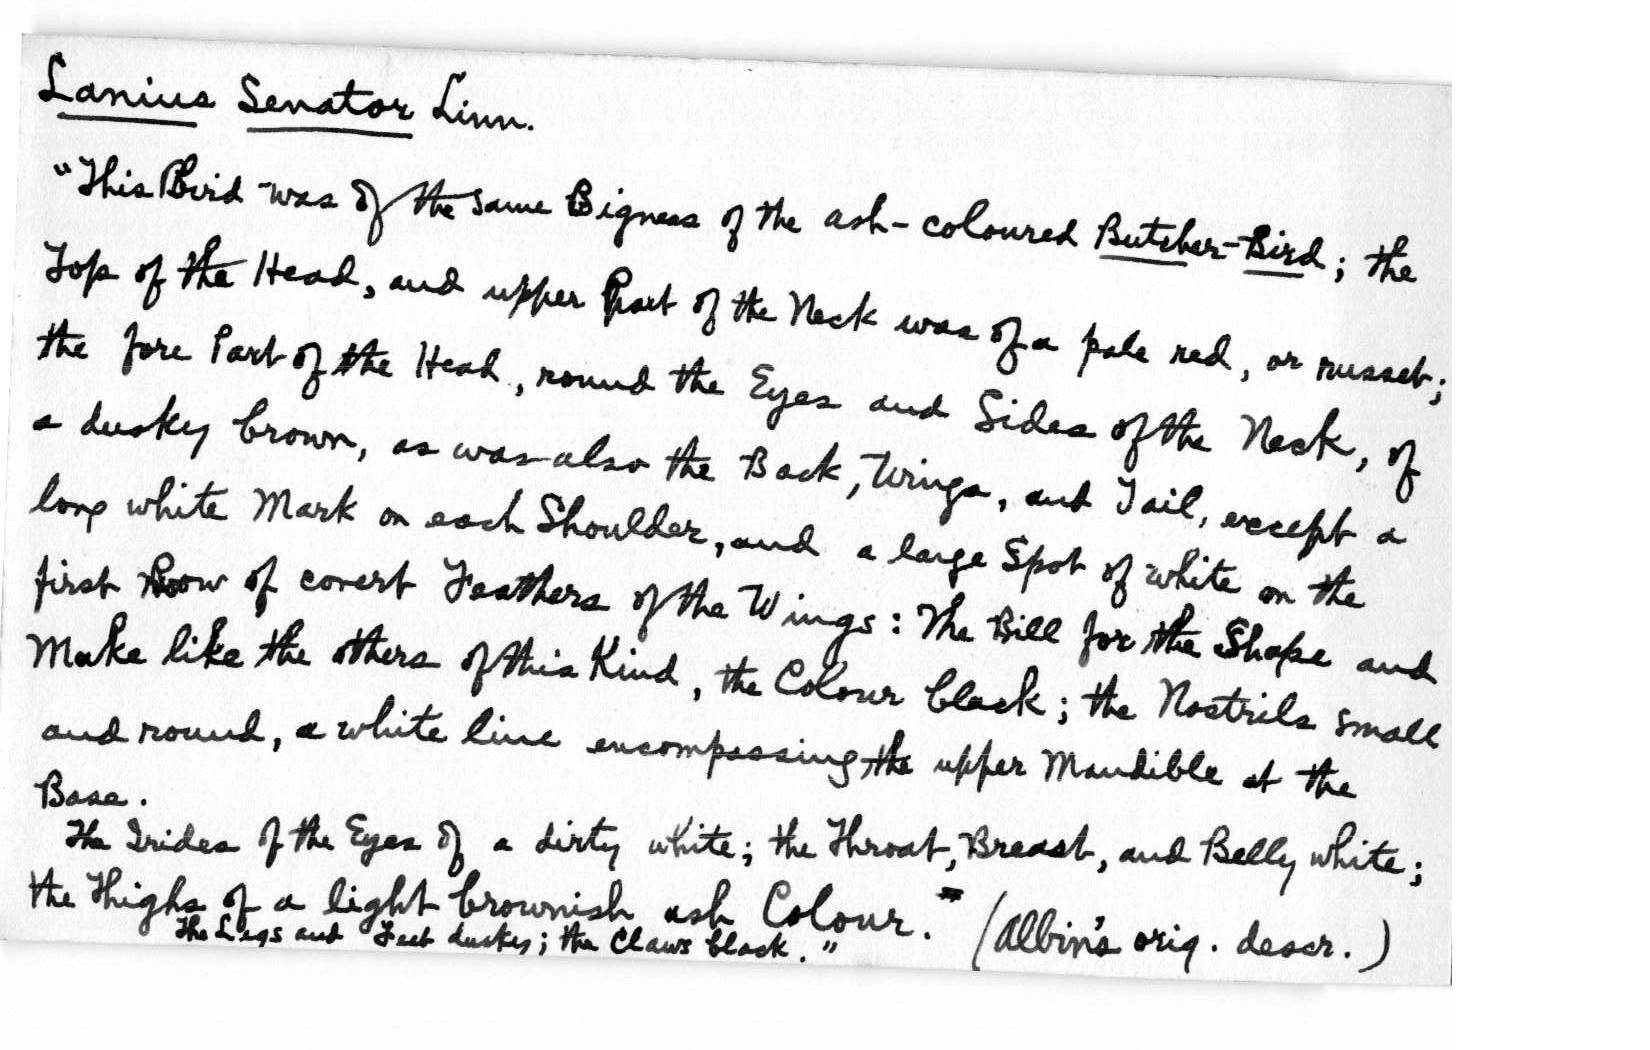 Lanius Senator Linn.
"This Bird was of the same Bigness of the ash-coloured Butcher-Bird; the
Top of the Head, and upper Part of the Neck was of a pale red, or russet;
the fore Part of the Head, round the Eyes and Sides of the Neck, of
a dusky brown, as was also the Back, Wings, and Tail, except a
long white Mark on each Shoulder, and a large Spot of white on the
first Row of covert Feathers of the Wings: The Bill for the Shape and
Make like the others of this Kind, the Colour black; the Nostrils small
and round, a white line encompassing the upper Mandible at the
Base.
The Irides of the Eyes of a dirty white; the Throat, Breast, and Belly white;
the Thighs of a light brownish ash Colour." (Albin's orig. descr.)
The Legs and Feet dusky; the Claws black."